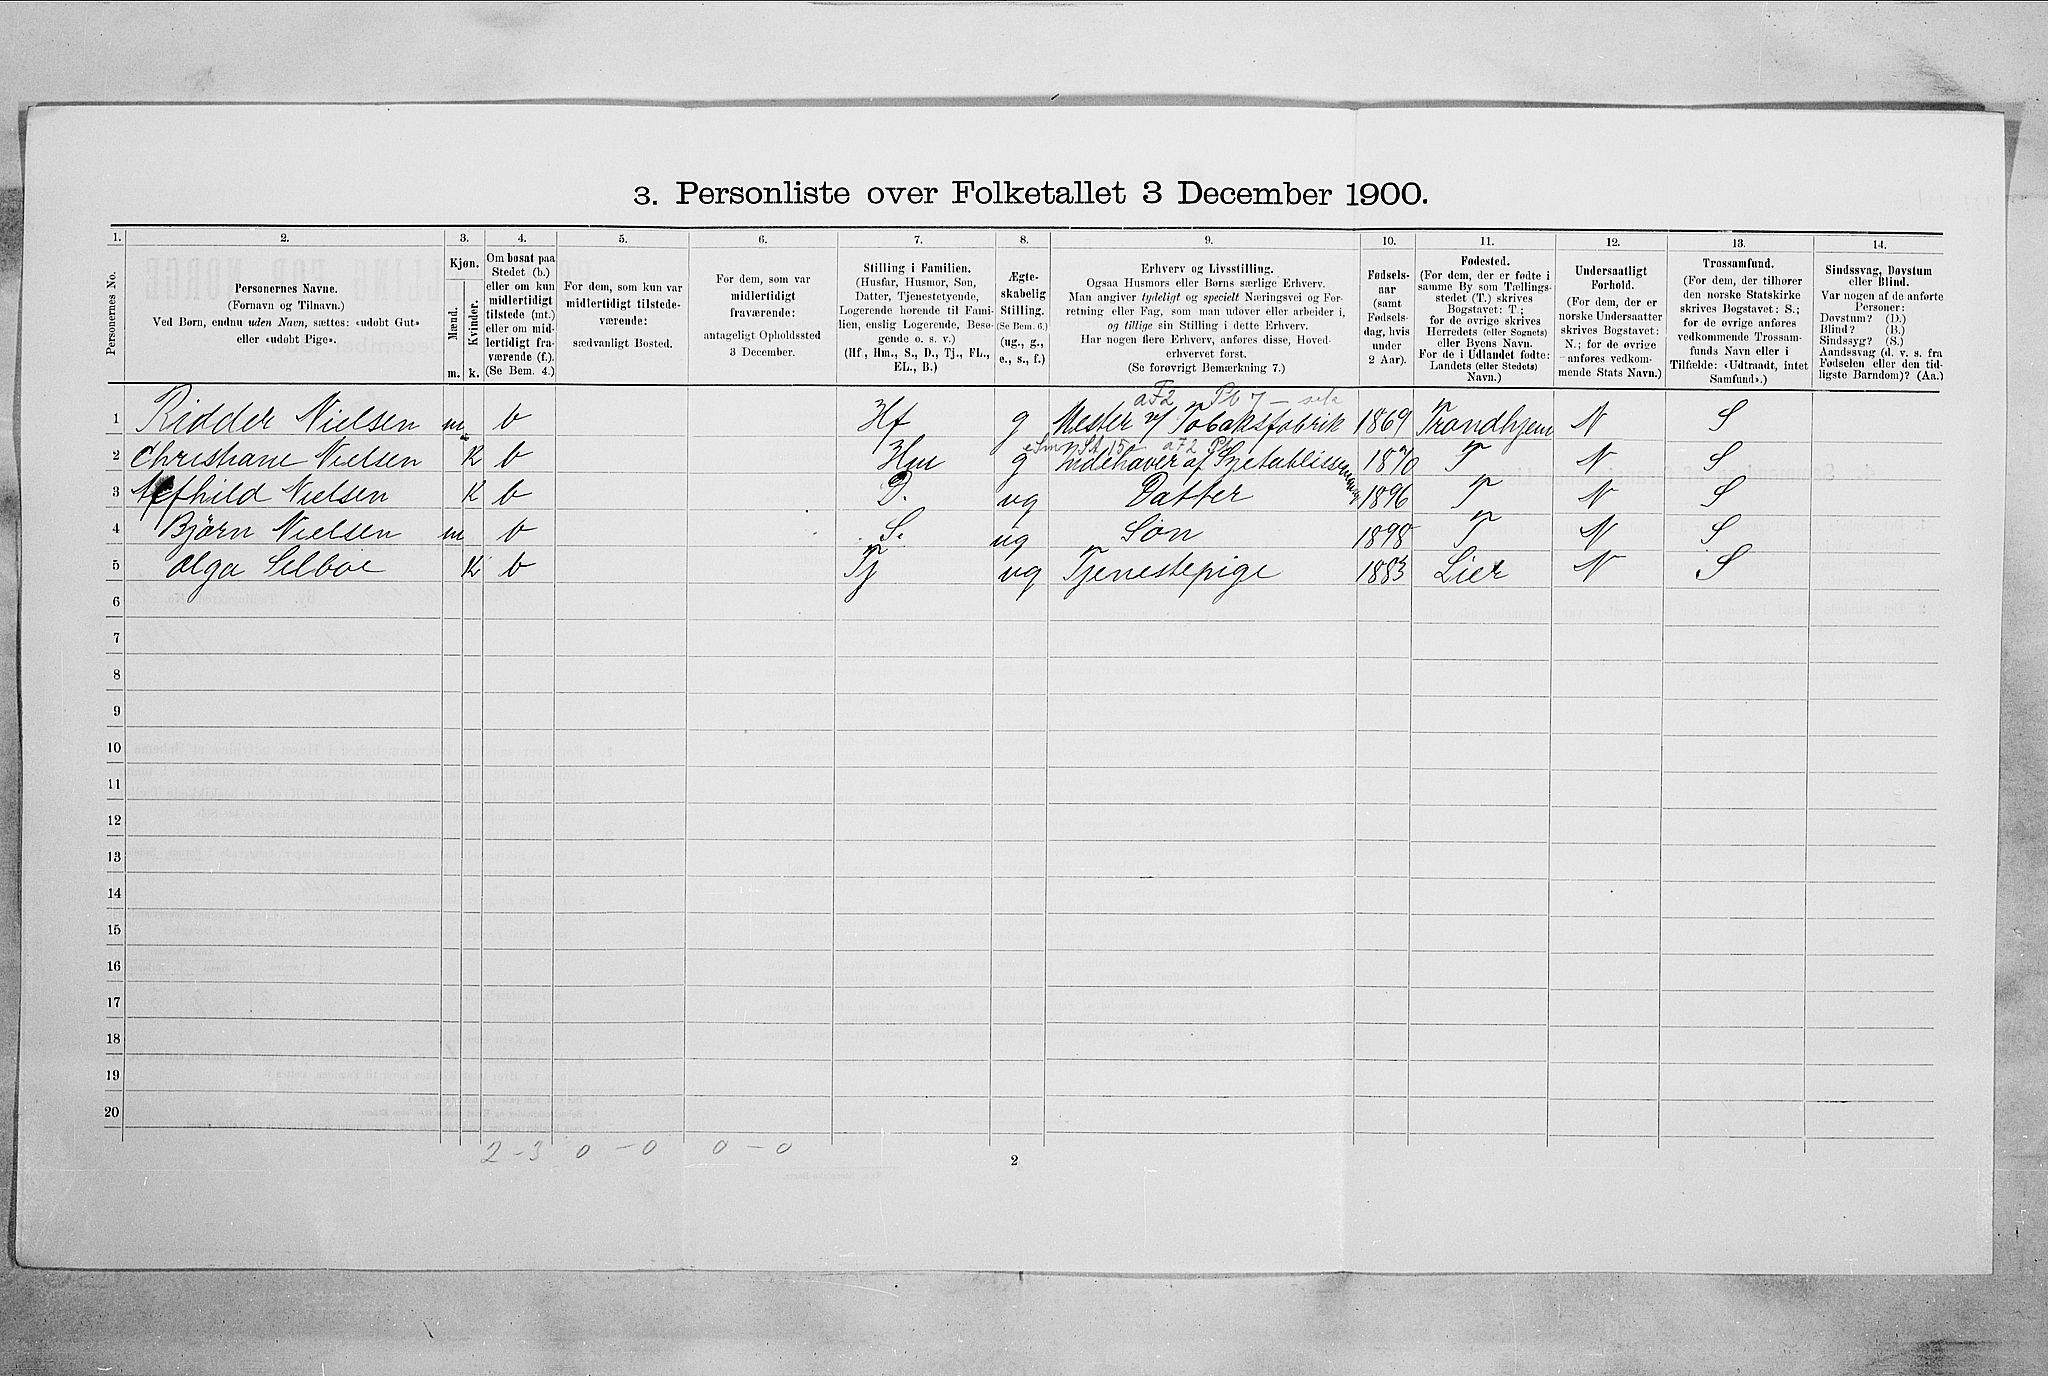 3. Personliste over Folketallet 3 December 1900.
1. 2. 3. 4. 5. 6. 7. 8. 9. 10. 11. 12. 13. 14.
Personernes No.
Personernes Navne.
(Fornavn og Tilnavn.)
Ved Børn, endnu uden Navn, sættes: «udøbt Gut»
eller «udøbt Pige».
Kjøn.
Mænd.
Kvinder.
m. k.
Om bosat paa
Stedet (b.)
eller om kun
midlertidigt
tilstede (mt.)
eller om mid-
lertidigt fra-
værende (f.).
(Se Bem. 4.)
For dem, som kun var
midlertidigt tilstede-
værende:
sædvanligt Bosted.
For dem, som var
midlertidigt
fraværende:
antageligt Opholdssted
3 December.
Stilling i Familien.
(Husfar, Husmor, Søn,
Datter, Tjenestetyende,
Logerende hørende til Fami-
lien, enslig Logerende, Besø-
gende o. s. v.)
(Hf., Hm., S., D., Tj., FL.,
EL., B.)
Ægte-
skabelig
Stilling.
(Se Bem. 6.)
(ug., g.,
e., s., f.)
Erhverv og Livsstilling.
Ogsaa Husmors eller Børns særlige Erhverv.
Man angiver tydeligt og specielt Næringsvei og For-
retning eller Fag, som man udøver eller arbeider i,
og tillige sin Stilling i dette Erhverv.
Har nogen flere Erhverv, anføres disse, Hoved-
erhvervet først.
(Se forøvrigt Bemærkning 7.)
Fødsels-
aar
(samt
Fødsels-
dag, hvis
under
2 Aar).
Fødested.
(For dem, der er fødte i
samme By som Tællings-
stedet (T.) skrives
Bogstavet: T.;
for de øvrige skrives
Herredets (eller Sognets)
eller Byens Navn.
For de i Udlandet fødte:
Landets (eller Stedets)
Navn.)
Undersaatligt
Forhold.
(For dem, der er
norske Undersaatter
skrives Bogstavet:
N.; for de øvrige
anføres vedkom-
mende Stats Navn.)
Trossamfund.
(For dem, der tilhører
den norske Statskirke
skrives Bogstavet: S.;
for de øvrige anføres
vedkommende Trossam-
funds Navn eller i
Tilfælde: «Udtraadt, intet
Samfund».)
Sindssvag, Døvstum
eller Blind.
Var nogen af de anførte
Personer:
Døvstum? (D.)
Blind? (B.)
Sindssyg? (S.)
Aandssvag (d. v. s. fra
Fødselen eller den tid-
ligste Barndom)? (Aa.)
aF2 Pb 7
1 Ridder Nielsen m b Hf g Mester v/ Tobaksfabrik 1869 Trondhjem N S
St 15 aF2
2 Christiane Nielsen K b Hm g Indehaver af 1870 T N S
3 Nielsen K b D. ug Datter 1896 T N S
4 Bjørn Nielsen m b S. ug Søn 1898 T N S
5 Olga Selboe K b Tj ug Tjenestepige 1883 Lier N S
6
7
8
9
10
11
12
13
14
15
16
17
18
19
20
2 - 3 0 - 0 0 - 0
2